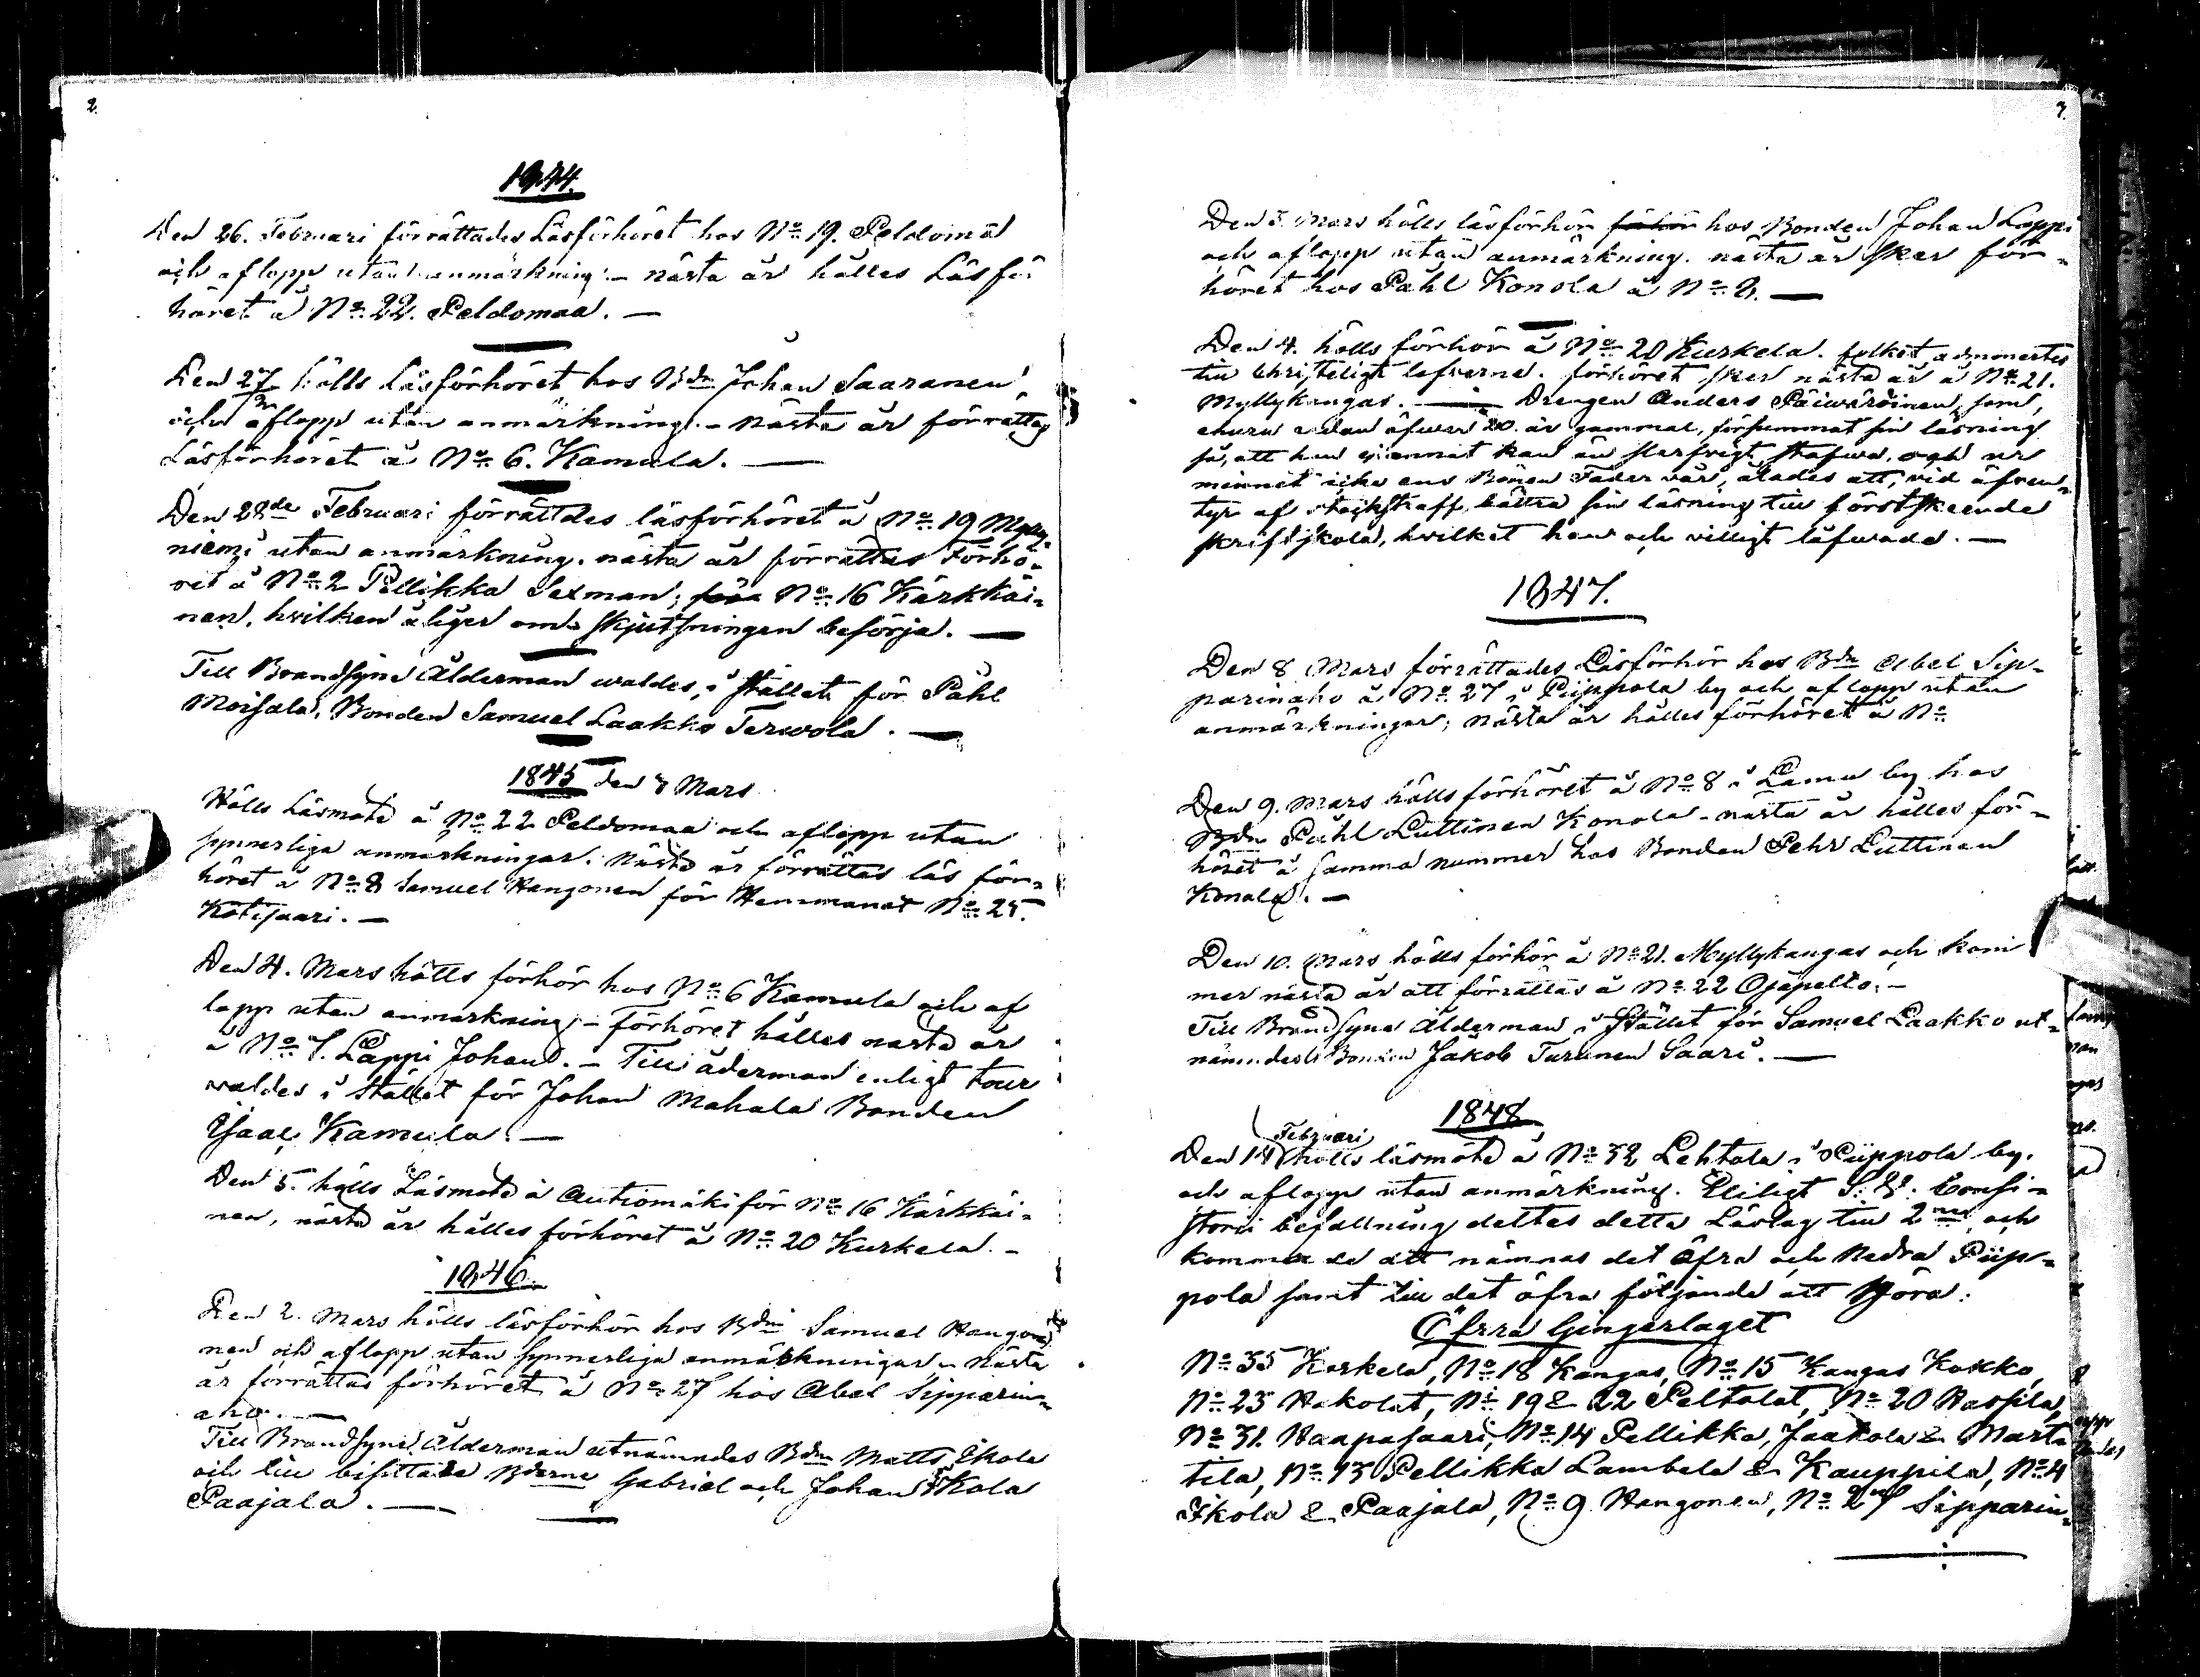 2.
1844.
Den 26. Februari förrättades Läsförhöret hos No 19. Peldomä
och aflopp utan anmärkning. – nästa år hålles Läsför
höret å No 22. Peldomaa. —
Den 27 hölls Läsförhöret hos Bdn Johan Saaranen,
och aflopp utan anmärkning. – Nästa år förrättas
Läsförhöret å No 6. Kamula. —
Den 28de Februari förrättdes läsförhöret å No 19 Mylly-
niemi utan anmärkning. nästa år förrättas Förhö-
ret å No 2 Pellikka Sexman; för No 16 Kärkkäi-
nen, hvilken åliger om skjutsningen beförja. —
Till Brandsyns Ålderman waldes, i stället för Påhl
Moisala, Bonden Samuel Laakko Terwola. —
1845 den 3 Mars
Hölls Läsmöte å No 22 Peldomaa och aflopp utan
synnerliga anmärkningar. Nästa år förrättas läs för-
höret å No 8 Samuel Hangonen för Hemmanet No 25.
Kotisaari. —
Den 4. Mars hölls förhör hos No 6 Kamula och af
lopp utan anmärkning – Förhöret hålles nästa år
å No 7. Lappi Johan. – Till åderman enligt tour
waldes i stället för Johan Mahala Bonden
Isaac Kamula. —
Den 5. hölls Läsmöte å Autiomäki för No 16 Kärkkäi-
nen, nästa år hålles förhöret å No 20 Kurkela. –
1846.
Den 2. Mars hölls läsförhör hos Bdn Samuel Hango-
nen och aflopp utan synnerliga anmärkningar – Nästa
år förrättas förhöret å No 27 hos Abel Sipparin-
aho. —
Till Brandsyns Ålderman utnämndes Bdn Matts Ikola
och till bisittare Bderne Gabriel och Johan Ikola
Paajala. —
3.
Den 3. Mars hölls läsförhör förhör hos Bonden Johan Lappi
och aflopp utan anmärkning. nästa år sker för-
höret hos Påhl Konola å No 8. —
Den 4. hölls förhör å No 20 Kurkela. folket admonertes
till Christeligt lefverne. förhöret sker nästa år å No 21.
Myllykangas. — Drengen Anders Päiwäröinen, som,
ehuru redan öfwer 20. år gammal, försummat sin läsning
så, att han ej annat kan än slarfvigt stafwa, och ur
minnet icke ens Bönen Fader vår, ålades att, vid äfven-
tyr af stockstraff bättra sin läsning till förstskeende
skriftskola, hvilket han och villigt låfwade. —
1847.
Den 8 Mars förrättades Läsförhör hos Bdn Abel Sip-
parinaho å No 27 i Piippola by och aflopp utan
anmärkningar; nästa år hålles förhöret å No
Den 9. Mars hölls förhöret å No 8 i Lamu by hos
Bdn Påhl Luttinen Konola – nästa år hålles för-
höret å samma nummer hos Bonden Pehr Luttinen
Konola. —
Den 10. Mars hölls förhör å No 21. Myllykangas och kom
mer nästa år att förrättas å No 22 Ojapelto. –
Till Brandsyns Ålderman i stället för Samuel Laakko ut-
nämndes Bonden Jakob Turunen Saari. —
1848
Februari
Den 14 hölls läsmöte å No 32 Lehtola i Piippola by.
och aflopp utan anmärkning. Enligt S: V: Consi-
storii befallning deltes detta Läslag till 2ne, och
komma de att nämnas det Öfra och Nedra Piip-
pola samt till det öfra följande att höra:
Öfra Gingerlaget
No 35 Korkela, No 18 Kangas, No 15 Kangas Kokko,
No 23 Hakolat, No 19 & 22 Peltolat, No 20 Haspila,
No 31. Haapasaari, No 14 Pellikka, Jaakola & Martti
tila, No 13 Pellikka Lambela & Kauppila, No 4
Ikola & Paajala, No 9 Hangonen, No 27 Sipparin-